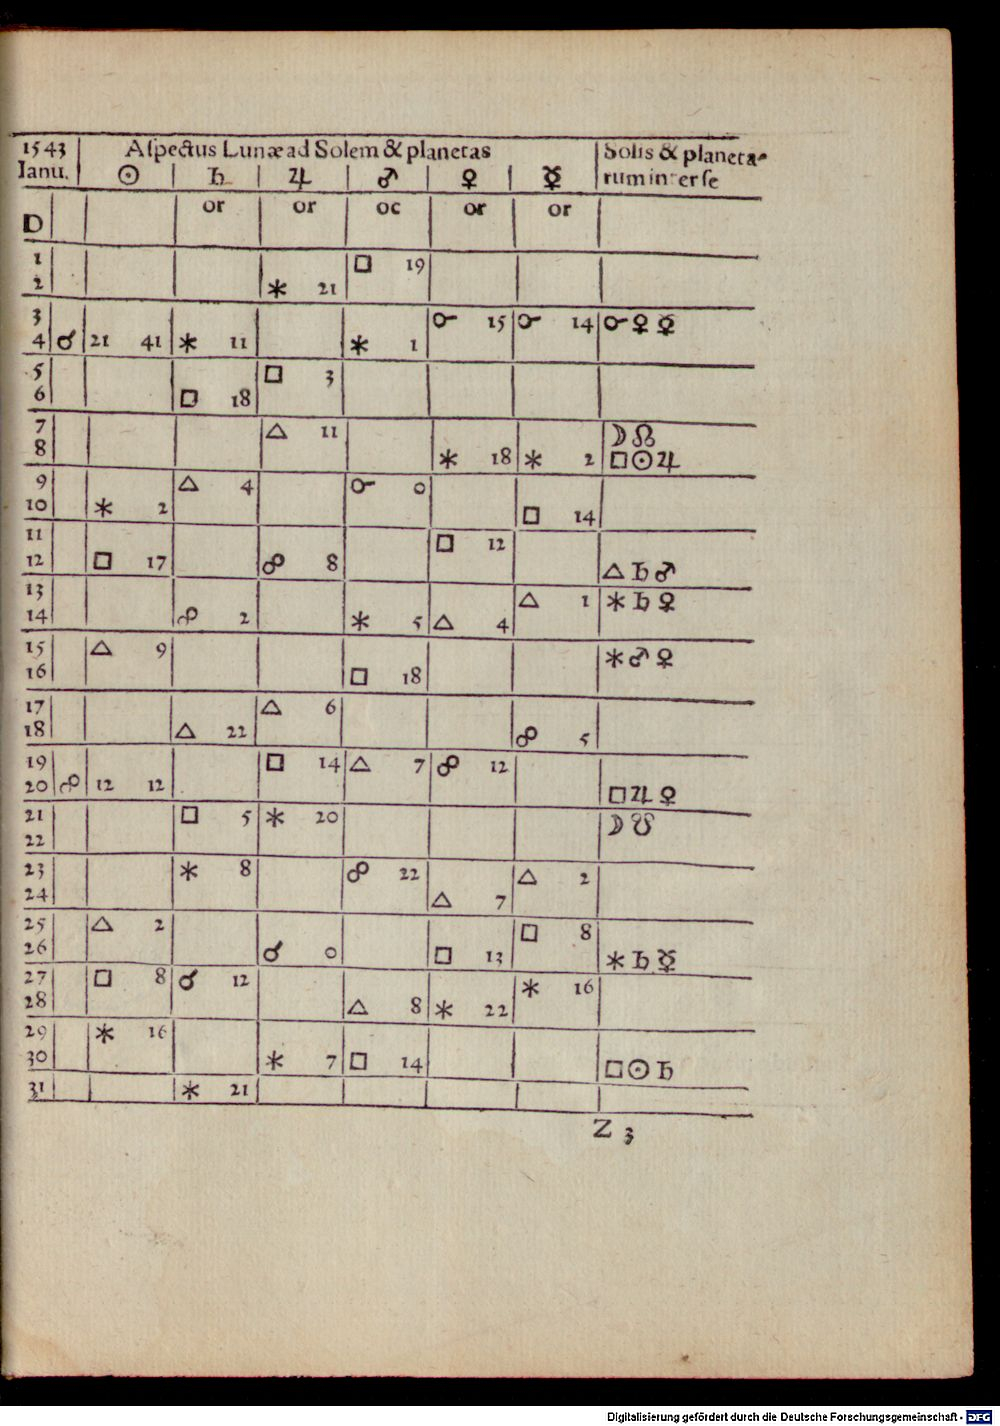 1543 Aſpectus Lunæ ad Solem & planetas Solis & planeta-
Ianu. ☉ ♄ ♃ ♂ ♀ ☿ rum inter ſe
D or or oc or or
1 □ 19
2 ⚹ 21
3 ☌ 15 ☌ 14 ☌ ♀ ☿
4 ☌ 21 41 ⚹ 11 ⚹ 1
5 □ 3
6 □ 18
7 △ 11 ☽ ☊
8 ⚹ 18 ⚹ 2 □ ☉ ♃
9 △ 4 ☌ 0
10 ⚹ 2 □ 14
11 □ 12
12 □ 17 ☍ 8 △ ♄ ♂
13 △ 1 ⚹ ♄ ♀
14 ☍ 2 ⚹ 5 △ 4
15 △ 9 ⚹ ♂ ♀
16 □ 18
17 △ 6
18 △ 22 ☍ 5
19 □ 14 △ 7 ☍ 12
20 ☍ 12 12 □ ♃ ♀
21 □ 5 ⚹ 20 ☽ ☋
22
23 ⚹ 8 ☍ 22 △ 2
24 △ 7
25 △ 2 □ 8
26 ☌ 0 □ 13 ⚹ ♄ ☿
27 □ 8 ☌ 12 ⚹ 16
28 △ 8 ⚹ 22
29 ⚹ 16
30 ⚹ 7 □ 14 □ ☉ ♄
31 ⚹ 21
Z 3
Digitalisierung gefördert durch die Deutsche Forschungsgemeinschaft - DFG